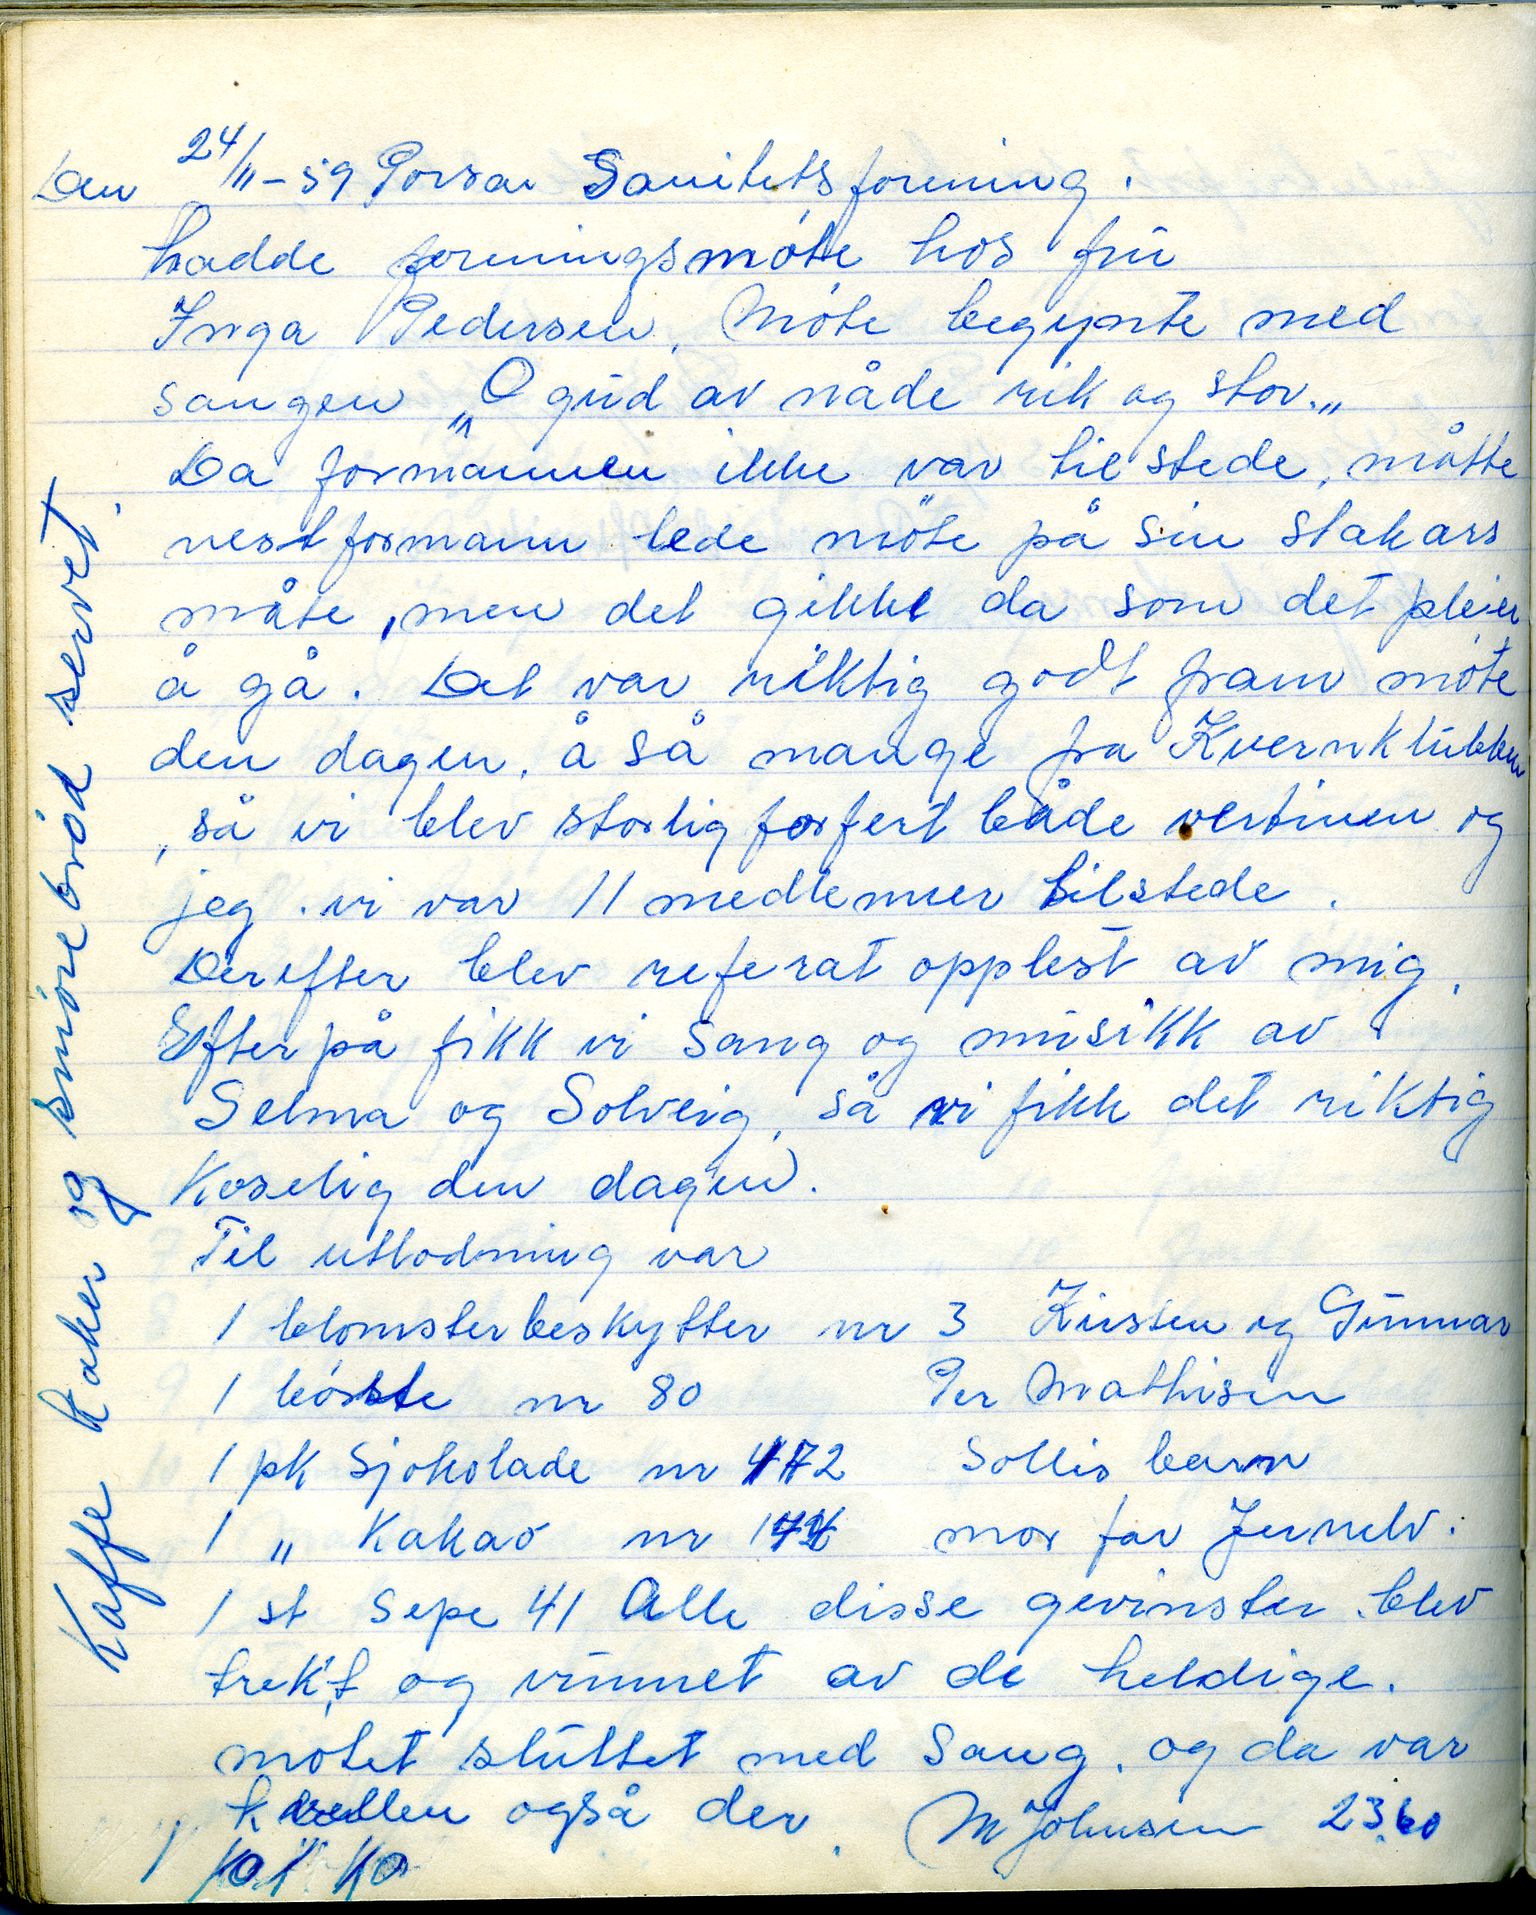 Den 24/11-59 Porsa Sanitetsforening.
hadde foreningsmöte hos frü
Inga Pedersen. Möte begynte med
sangen „O gud av nåde rik og stor.„
Da formannen ikke var til stede, måtte
nestformann lede möte på sin stakars
måte, men det gikke da som det pleier
å gå. Det var riktig godt fram möte
den dagen. å så mange fra Kvernklubben
, så vi blev storlig forfert både vertinen og
jeg. vi var 11 medlemmer tilstede.
Derefter blev referat opplest av mig.
Efterpå fikk vi sang og musikk av
Selma og Solveig, så vi fikk det riktig
Koselig den dagen.
Til utlodning var
1 blomsterbeskytter nr 3 Kirsten og Gunnar
1 börste nr 80 Per Mathisen
1 pk Sjokolade nr 172 Sollis barn
1 „ Kakao nr mor far Jernelv.
1 st Sepe 41 Alle disse gevinster blev
trekt og vunnet av de heldige.
mötet slüttet med Sang. og da var
kvellen også der. M Johnsen 23.60
Kaffe Kaker og smörebröd servet.